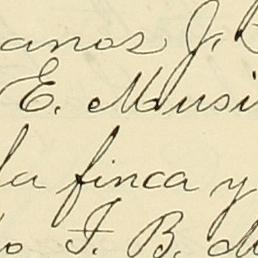 anos J.
E. Musi
la finca y
o F. B. d